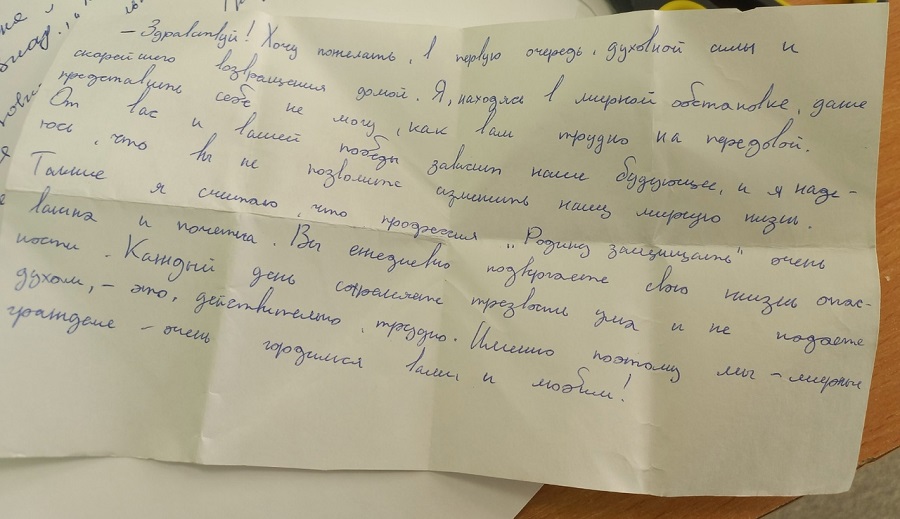 — Здравствуй! Хочу пожелать, в первую очередь, духовной силы и
скорейшего возвращения домой. Я, находясь в мирной обстановке, даже
представить себе не могу, как вам трудно на передовой.
От вас и вашей победы зависит наше будующее, и я наде-
юсь, что вы не позволите изменить нашу мирную жизнь.
Также я считаю, что профессия „Родину защищать" очень
важна и почетна. Вы ежедневно подвергаете свою жизнь опас-
ности. Каждый день сохраняете трезвость ума и не падаете
духом, – это, действительно, трудно. Именно поэтому мы – мирные
граждане – очень гордимся вами и любим!